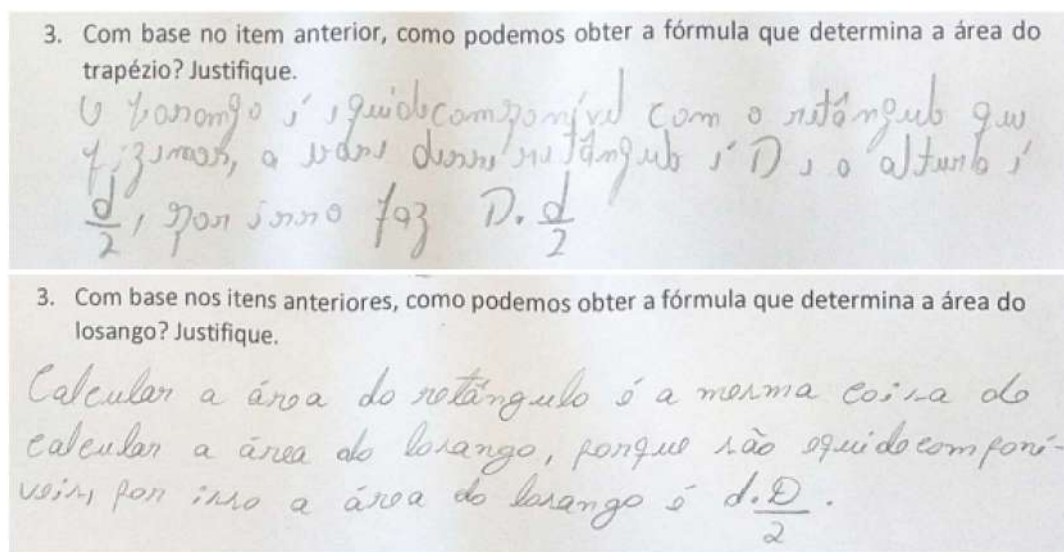 3. Com base no item anterior, como podemos obter a fórmula que determina a área do
trapézio? Justifique.
O losango é equidecomponível com o retângulo que
fizemos, a base desse retângulo é D e o altura é
d/2, por isso faz D. d/2
3. Com base nos itens anteriores, como podemos obter a fórmula que determina a área do
losango? Justifique.
Calcular a área do retângulo é a mesma coisa do
calcular a área do losango, porque são equidecomponí-
veis, por isso a área do losango é d.D/2.